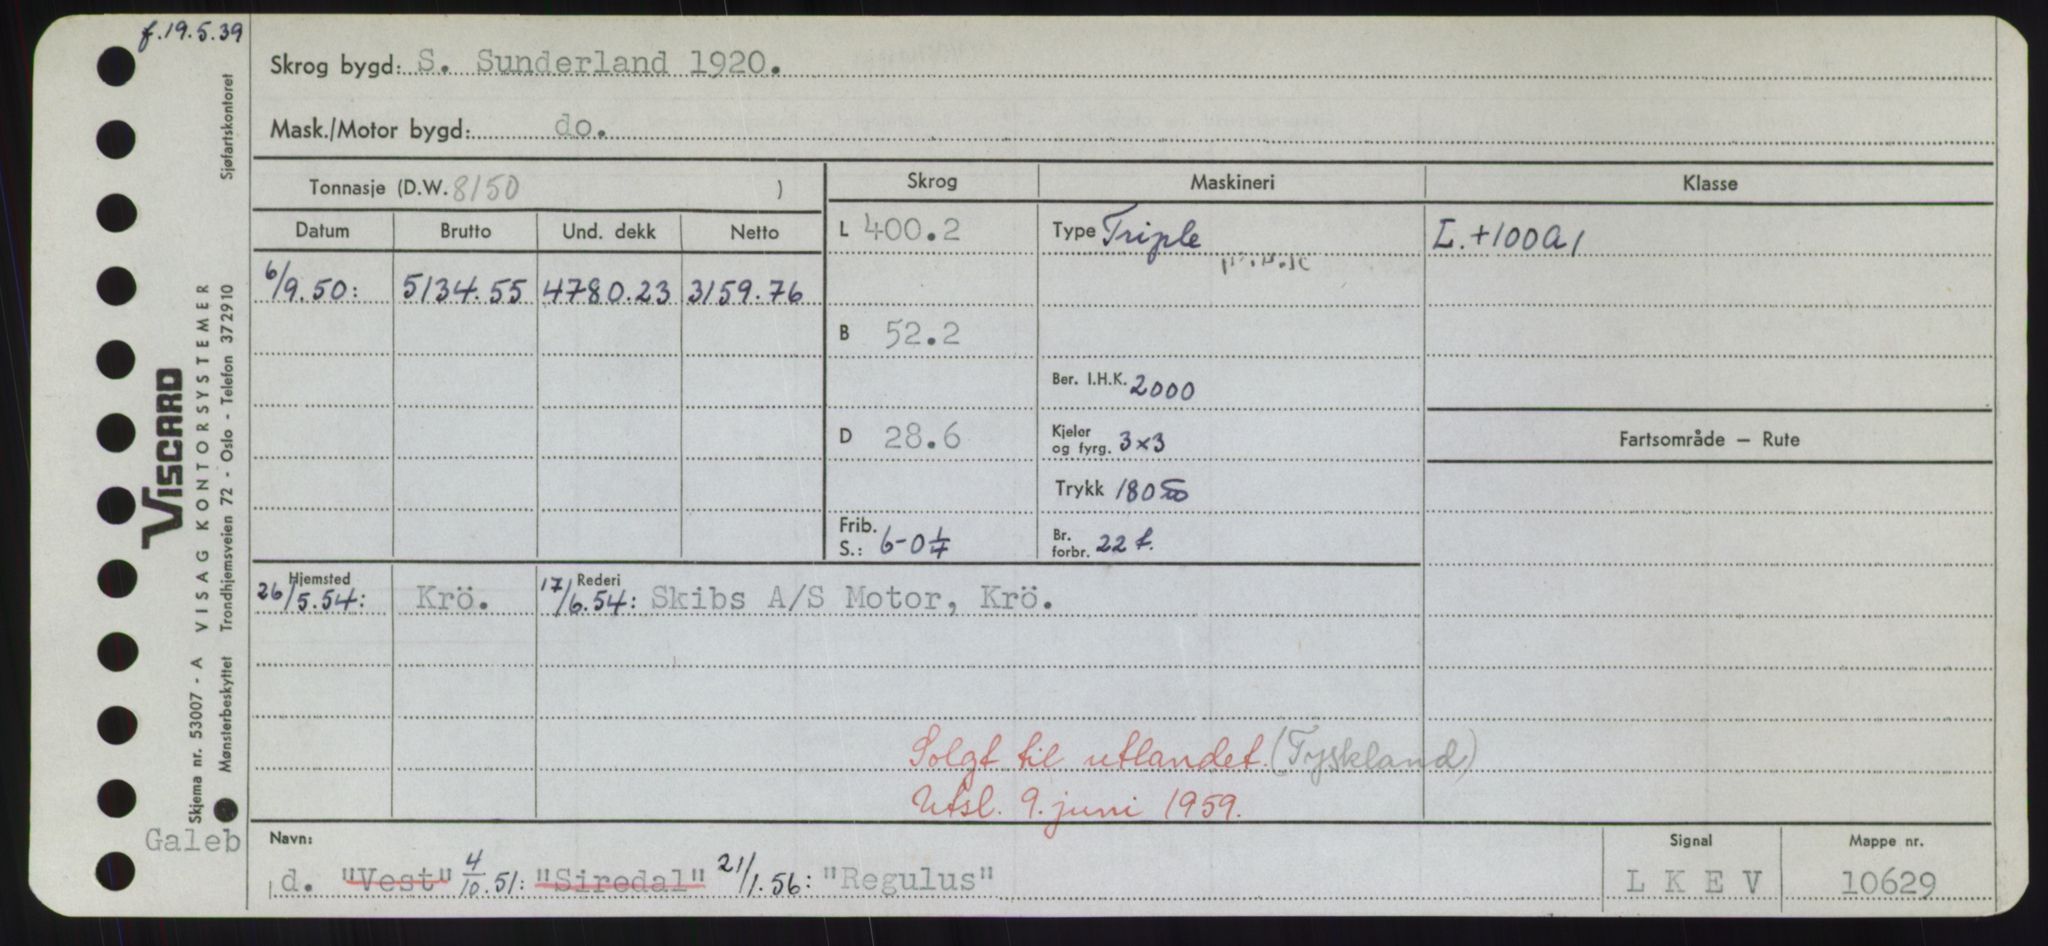 f.19.5.39
Skrog bygd: S. Sunderland 1920.
Mask./Motor bygd: do.
Tonnasje (D.W. 8150 )
Skrog
Maskineri
Klasse
Datum
Brutto
Und. dekk
Netto
6/9.50:
5134.55
4780.23
3159.76
L 400.2
B 52.2
D 28.6
Frib.
S.: 6-0¼
Type Triple
Ber. I.H.K. 2000
Kjeler
og fyrg. 3x3
Trykk 180
Br.
forbr. 22 t.
I.+100A1
Fartsområde — Rute
Hjemsted
26/5.54: Krö.
Rederi
17/6.54: Skibs A/S Motor, Krö.
Solgt til utlandet. (Tyskland)
Utsl. 9. juni 1959.
Galeb
Navn:
d. "Vest" 4/10.51: "Siredal" 21/1.56: "Regulus"
Signal
L K E V
Mappe nr.
10629
VISCARD
VISAG KONTORSYSTEMER
Skjema nr. 53007 - A
Trondhjemsveien 72 - Oslo - Telefon 372910
Mønsterbeskyttet
Sjøfartskontoret